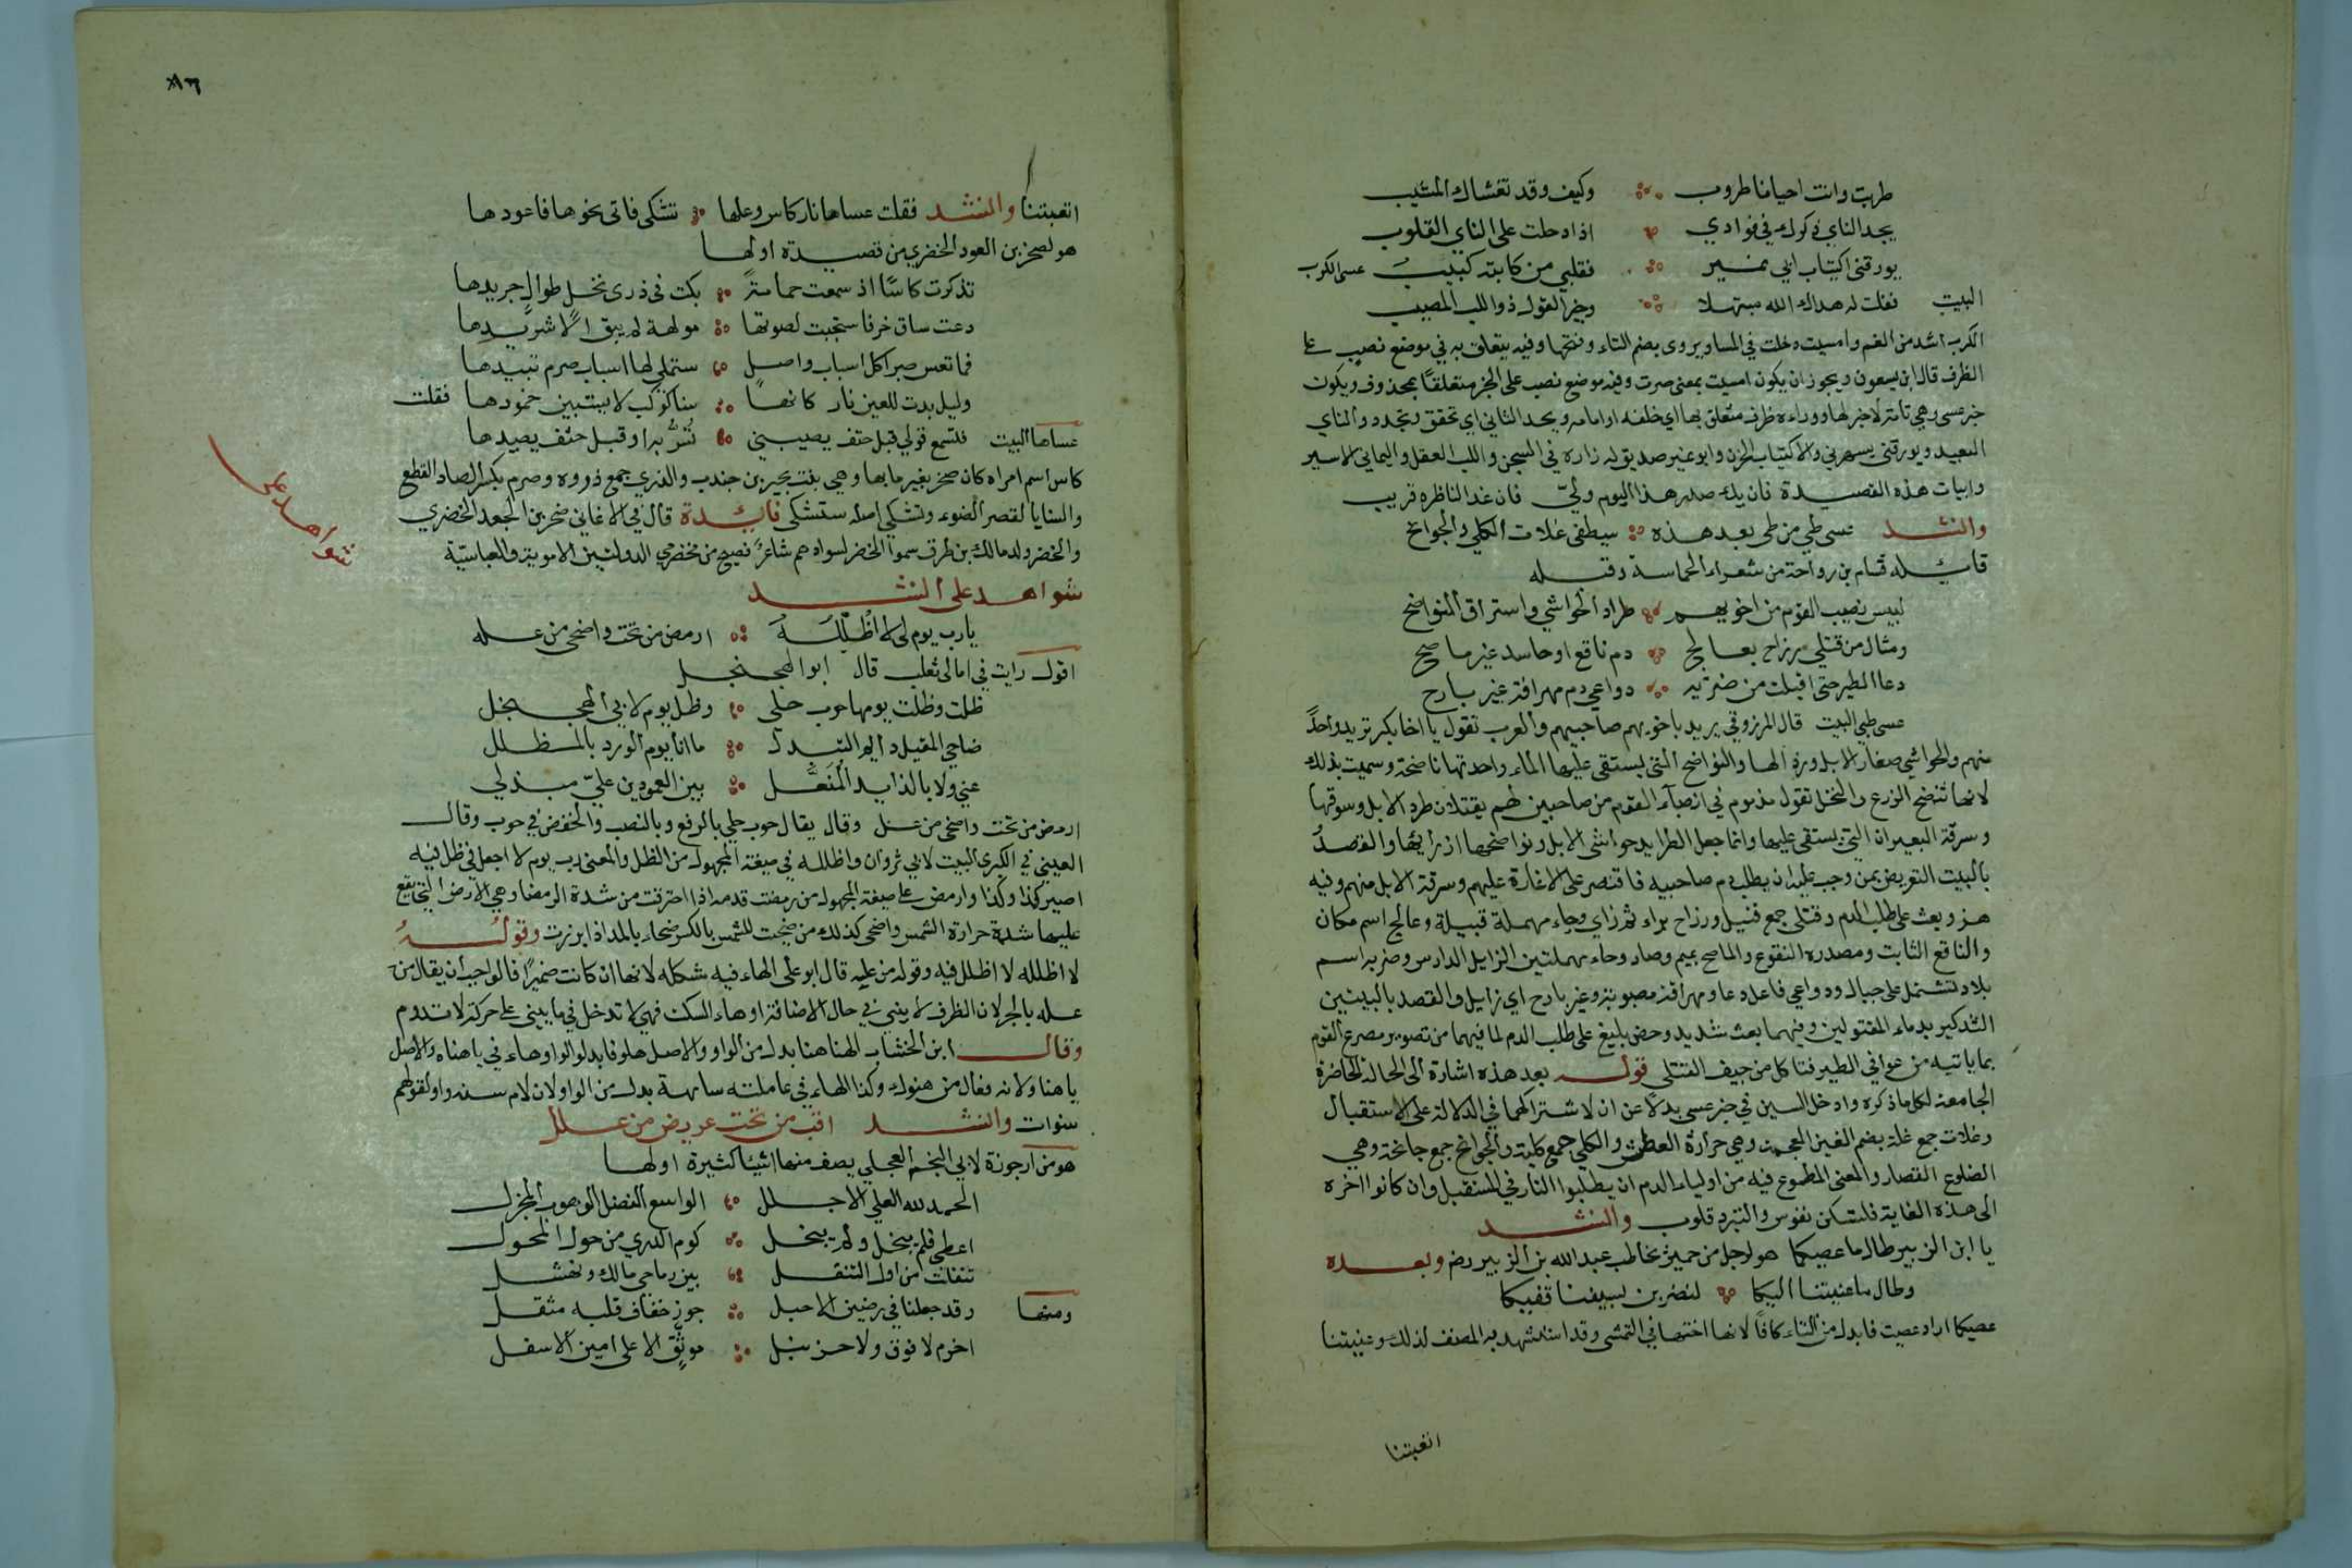 طربت وانت احيانا طروب وكيف وقد تغشاك المشيب
يجد الناي ذكرك في فوادي اذا دهلت على الناي القلوب
يورقني اكتياب ابي نمير فقلبي من كابته كييب عسى الكرب
البيت فقلت له هداك الله مهلا وخير القول ذو اللب المصيب
الكرب اشد من الغم وامسيت دخلت في المسا ويروى بضم التاء وفتحها وفيه يتعلق به في موضع نصب على
الظرف قال ابن يسعون ويجوز ان يكون امسيت بمعنى صرت وفيه موضع نصب على الخبر متعلقا بمحذوف ويكون
خبر عسى وهي تامة لا خبر لها ووراءه ظرف متعلق بها اي خلفه او امامه ويجد الناي اي تحقق وتجدد والناي
البعيد ويورقني يسهرني والاكتياب الحزن وابو نمير صديق له زاره في السجن واللب العقل واليماني الاسير
وابيات هذه القصيدة فان يك صدر هذا اليوم ولى فان غدا لناظره قريب
وانشد عسى طي من طي بعد هذه ستطفى غلات الكلى والجوانح
قايله قسام بن رواحة من شعراء الحماسة وقبله
لبيس نصيب القوم من اخويهم طراد الحواشي واستراق النواضح
ومثال من قتلى رزاح بعالج دم ناقع او حاسد غير ماصح
دعا الطير حتى اقبلت من ضريه دواعي دم مهراقة غير بارح
عسى طي البيت قال المرزوقي يريد باخويهم صاحبيهم والعرب تقول يا اخا بكر تريد واحدا
منهم والحواشي صغار الابل ورذالها والنواضح التي يستقى عليها الماء واحدتها ناضحة وسميت بذلك
لانها تنضح الزرع والنخل تقول مذموم في انصباء القوم من صاحبين لهم يقتلان طرد الابل وسوقها
وسرقة البعيران التي يستقى عليها وانما جعل الطرايد حواشي الابل ونواضحها ازراء بها والقصد
بالبيت التعريض بمن وجب عليه ان يطلب دم صاحبيه فاقتصر على الاغارة عليهم وسرقة الابل منهم وفيه
هز وبعث على طلب الدم وقتلى جمع قتيل ورزاح براء ثم زاي وحاء مهملة قبيلة وعالج اسم مكان
والناقع الثابت ومصدره النقوع والماصح بميم وصاد وحاء مهملتين الزايل الدارس وضريه اسم
بلاد تشتمل على جبال ودواعي فاعل دعا ومهراقة مصبوبة وغير بارح اي زايل والقصد بالبيتين
التذكير بدماء المقتولين وفيهما بعث شديد وحض بليغ على طلب الدم لما فيهما من تصوير مصرع القوم
بما ياتيه من عوافي الطير فتاكل من جيف القتلى قوله بعد هذه اشارة الى الحالة الحاضرة
الجامعة لكل ما ذكره وادخل السين في خبر عسى بدلا عن ان لاشتراكهما في الدلالة على الاستقبال
وغلات جمع غلة بضم الغين المعجمة وهي حرارة العطش والكلى جمع كلية والجوانح جمع جانحة وهي
الضلوع القصار والمعنى المطموع فيه من اولياء الدم ان يطلبوا الثار في المستقبل وان كانوا اخره
الى هذه الغاية فلتسكن نفوس والتبرد قلوب وانشد
يا ابن الزبير طال ما عصيكا هو لرجل من حمير يخاطب عبد الله بن الزبير رض وبعده
وطال ما عنيتنا اليكا لنضربن بسيفنا قفيكا
عصيكا اراد عصيت فابدل من التاء كافا لانها اختها في الهمس وقد استشهد به المصنف لذلك وعنيتنا
اتعبتنا
٨٦
اتعبتنا وانشد فقلت عساها نار كاس وعلها تشكى فاتي نحوها فاعودها
هو لصخر بن العود الخضري من قصيدة اولها
تذكرت كاسا اذ سمعت حمامة بكت في ذرى نخل طوال جريدها
دعت ساق حر فاستجبت لصوتها مولهة لم يبق الا شريدها
فما نفس صبرا كل اسباب واصل ستملى لها اسباب صرم تبيدها
وليل بدت للعين نار كانها سنا كوكب لا يستبين خمودها فقلت
عساها البيت فتسمع قولي قبل حتف يصيبني تسر به او قبل حتف يصيدها
كاس اسم امراه كان صخر بغير ما بها وهي بنت بجير بن جندب والذري جمع ذروه وصرم بكسر الصاد القطع
والسنايا لقصر الضوء وتشكى اصله ستشكى فائدة قال في الاغاني صخر بن الجعد الخضري
والخضر ولد مالك بن طرق سموا الخضر لسوادهم شاعر فصيح من مخضرمي الدولتين الاموية والعباسية
شواهد على
شواهد على انشد
يا رب يوم لي لا اظلله ارمض من تحت واضحى من عله
اقول رايت في امالي ثعلب قال ابو الهجنجل
ظلت وظلت يومها حوب حلي وظل يوم لابي الهجنجل
ضاحي المقيل دايم التبذل ما انا يوم الورد بالمظلل
عني ولا بالذايد المنعل بين العمودين علي مبذلي
ارمض من تحت واضحى من عل وقال يقال حوب حلي بالرفع وبالنصب والخفض في حوب وقال
العيني في الكبرى البيت لابي ثروان واظلله في صيغة المجهول من الظل والمعنى رب يوم لا اجعل في ظل فيه
اصير كذا وكذا وارمض على صيغة المجهول من رمضت قدمه اذا احترقت من شدة الرمضا وهي الارض التي تقع
عليها شدة حرارة الشمس واضحى كذلك من ضحيت للشمس بالكسر ضحاء بالمد اذا برزت وقوله
لا اظلله لا اظلل فيه وقوله من عليه قال ابو علي الهاء فيه مشكله لانها ان كانت ضميرا فالواجب ان يقال من
عله بالجر لان الظرف لا يبنى في حال الاضافة او هاء السكت فهي لا تدخل في ما يبنى على حركة لا تدوم
وقال ابن الخشاب الهنا هنا بدل من الواو والاصل علو فابدلوا الواو هاء في يا هناه والاصل
يا هناو لانه فعال من هنوك وكذا الهاء في عاملته سانهة بدل من الواو لان لام سنه واو لقولهم
سنوات وانشد اقب من تحت عريض من عل
هو من ارجوزة لابي النجم العجلي يصف منها اشيا كثيرة اولها
الحمد لله العلي الاجلل الواسع الفضل الوهوب المجزل
اعطى فلم يبخل ولم يبخل كوم الذرى من خول المخول
تنقلت من اول التنقل بين رماحي مالك ونهشل
ومنها وقد جعلنا في وضين الاحبل جوز خفاف قلبه مثقل
اخزم لا قوق ولا حزنبل موثق الاعلى امين الاسفل